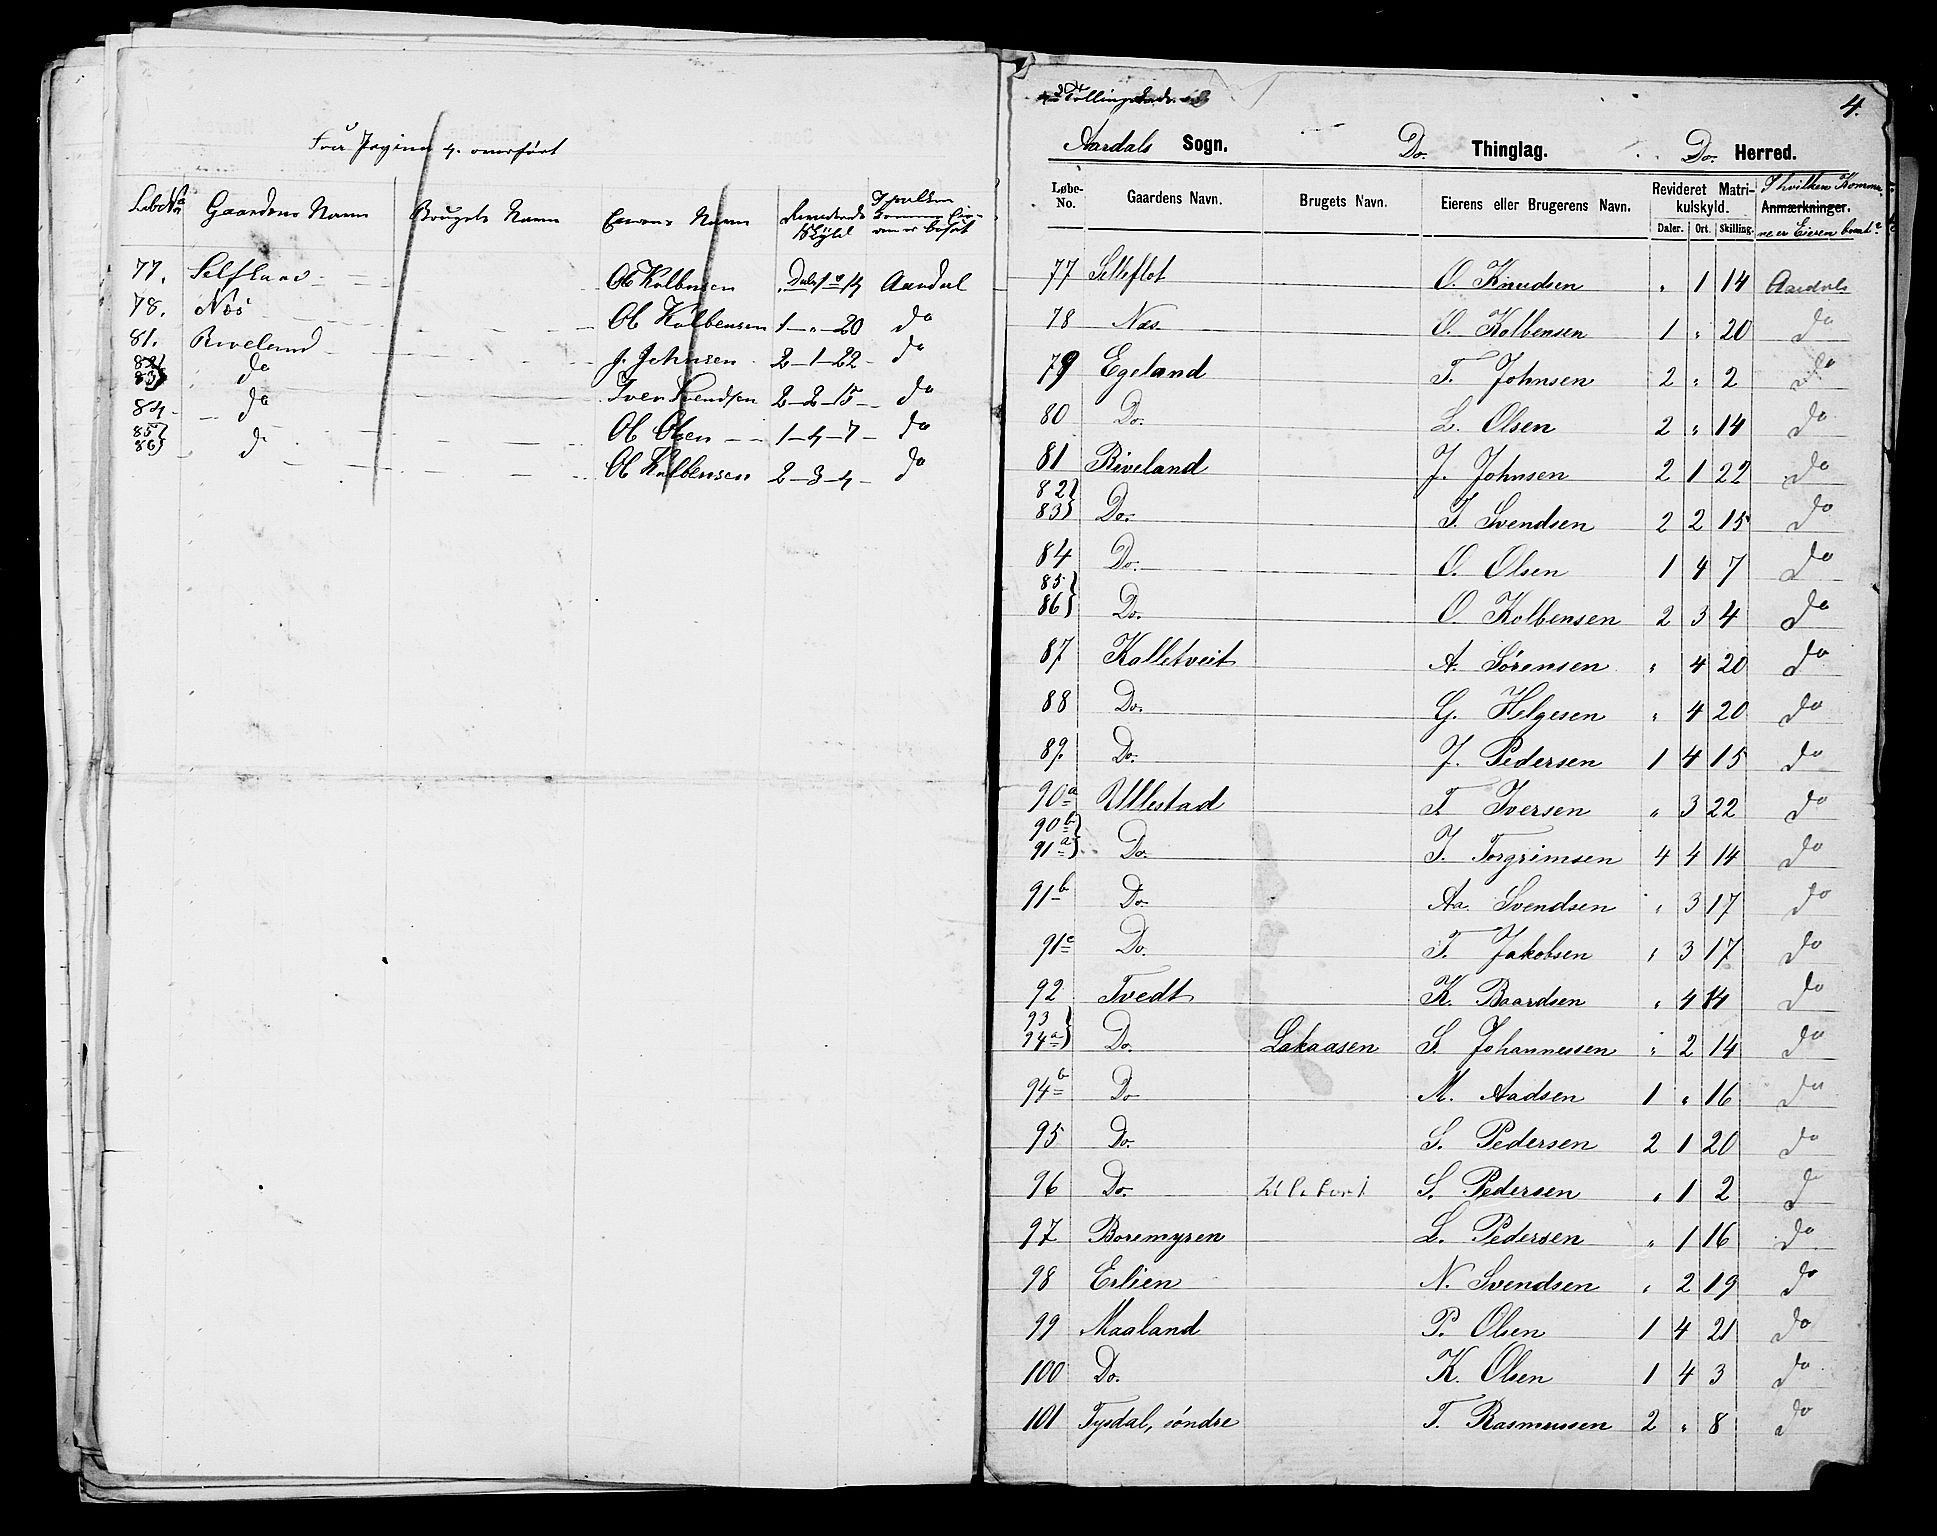 Fra Pagina 4. overført
Løbe No Gaardens Navn Brugets Navn Eierens Navn Skyld
77. Ol Kolbensen Aardal
78. Næs Ol Kolbensen 1 - " - 20 do
81. Riveland J. Johnsen 2 - 1 - 22 do
82
83 do Iver Svendsen 2 - 2 - 15 do
84 do Ol Olsen 1 - 4 - 7 do
85
86 d Ol Kolbensen 2 - 3 - 4 do
4.
Aardals Sogn. Do. Thinglag. Do. Herred.
Løbe-No. Gaardens Navn. Brugets Navn. Eierens eller Brugerens Navn. Revideret Matrikulskyld. Daler. Ort. Skilling. Anmærkninger. I hvilken Kommune er Eieren bosat?
77 Selleflot O. Knudsen " 1 14 Aardals
78 Næs O. Kolbensen 1 " 20 do
79 Egeland T. Johnsen 2 " 2 do
80 Do. L. Olsen 2 " 14 do
81 Riveland J. Johnsen 2 1 22 do
82
83 Do. I. Svendsen 2 2 15 do
84 Do. O. Olsen 1 4 7 do
85
86 Do. O Kolbensen 2 3 4 do
87 Kalletveit A. Sørensen " 4 20 do
88 Do. G. Helgesen " 4 20 do
89. Do. J. Pedersen 1 4 15 do
90 a Ullestad T. Iversen " 3 22 do
90 b
91 a Do. I. Torgrimsen 4 4 14 do
91 b Do. Aa. Svendsen " 3 17 do
91 c Do. T. Jakobsen " 3 17 do
92 Tvedt K. Baardsen " 4 14 do
93
94 a Do. Lakaasen S. Johannessen " 2 14 do
94 b Do M. Aadsen 1 " 16 do
95 Do. S. Pedersen 2 1 20 do
96 Do. S. Pedersen " 1 2 d
97 Boremyren L. Pedersen " 1 16 do
98 Erlien N. Svendsen " 2 19 do
99 Maaland P. Olsen 1 4 21 do
100 Do. K. Olsen 1 4 3 do
101 Tysdal, søndre T. Rasmussen 2 " 8 do